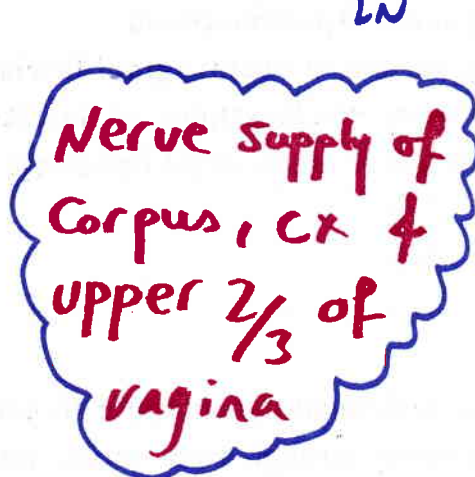 LN
Nerve supply of
Corpus, cx &
upper 2/3 of
vagina